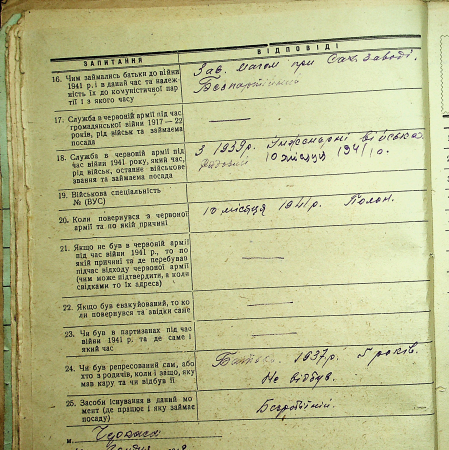 ЗАПИТАННЯ
ВІДПОВІДІ
16. Чим займались батьки до війни
1941 р. і в даний час та належ-
ність їх до комуністичної пар-
тії і з якого часу
Зав. магом при Сах. Заводі.
Безпартійного
17. Служба в червоній армії під час
громадянської війни 1917—22
років, рід військ та займаєма
посада
18. Служба в червоній армії під
час війни 1941 року, який час,
рід військ, останнє військове
звання та займаєма посада
З 1939 р. Війська.
рядовий 10 місяця 1941 р.
19. Військова спеціальність
№ (ВУС)
20. Коли повернувся з червоної
армії та по якій причині
10 місяця 1941 р. Полон.
21. Якщо не був в червоній армії
під час війни 1941 р., то по
якій причині та де перебував
підчас відходу червоної армії
(чим може підтвердити, а коли
свідками то їх адреса)
22. Якщо був евакуйований, то ко-
ли повернувся та звідки саме
23. Чи був в партизанах під час
війни 1941 р. та де саме і
який час
24. Чи був репресований сам, або
хто з родичів, коли і защо, яку
мав кару та чи відбув її
Батько 1937 р. років.
Не відбув.
25. Засоби існування в даний мо-
мент (де працює і яку займає
посаду)
Безробітний
м. Черкаси